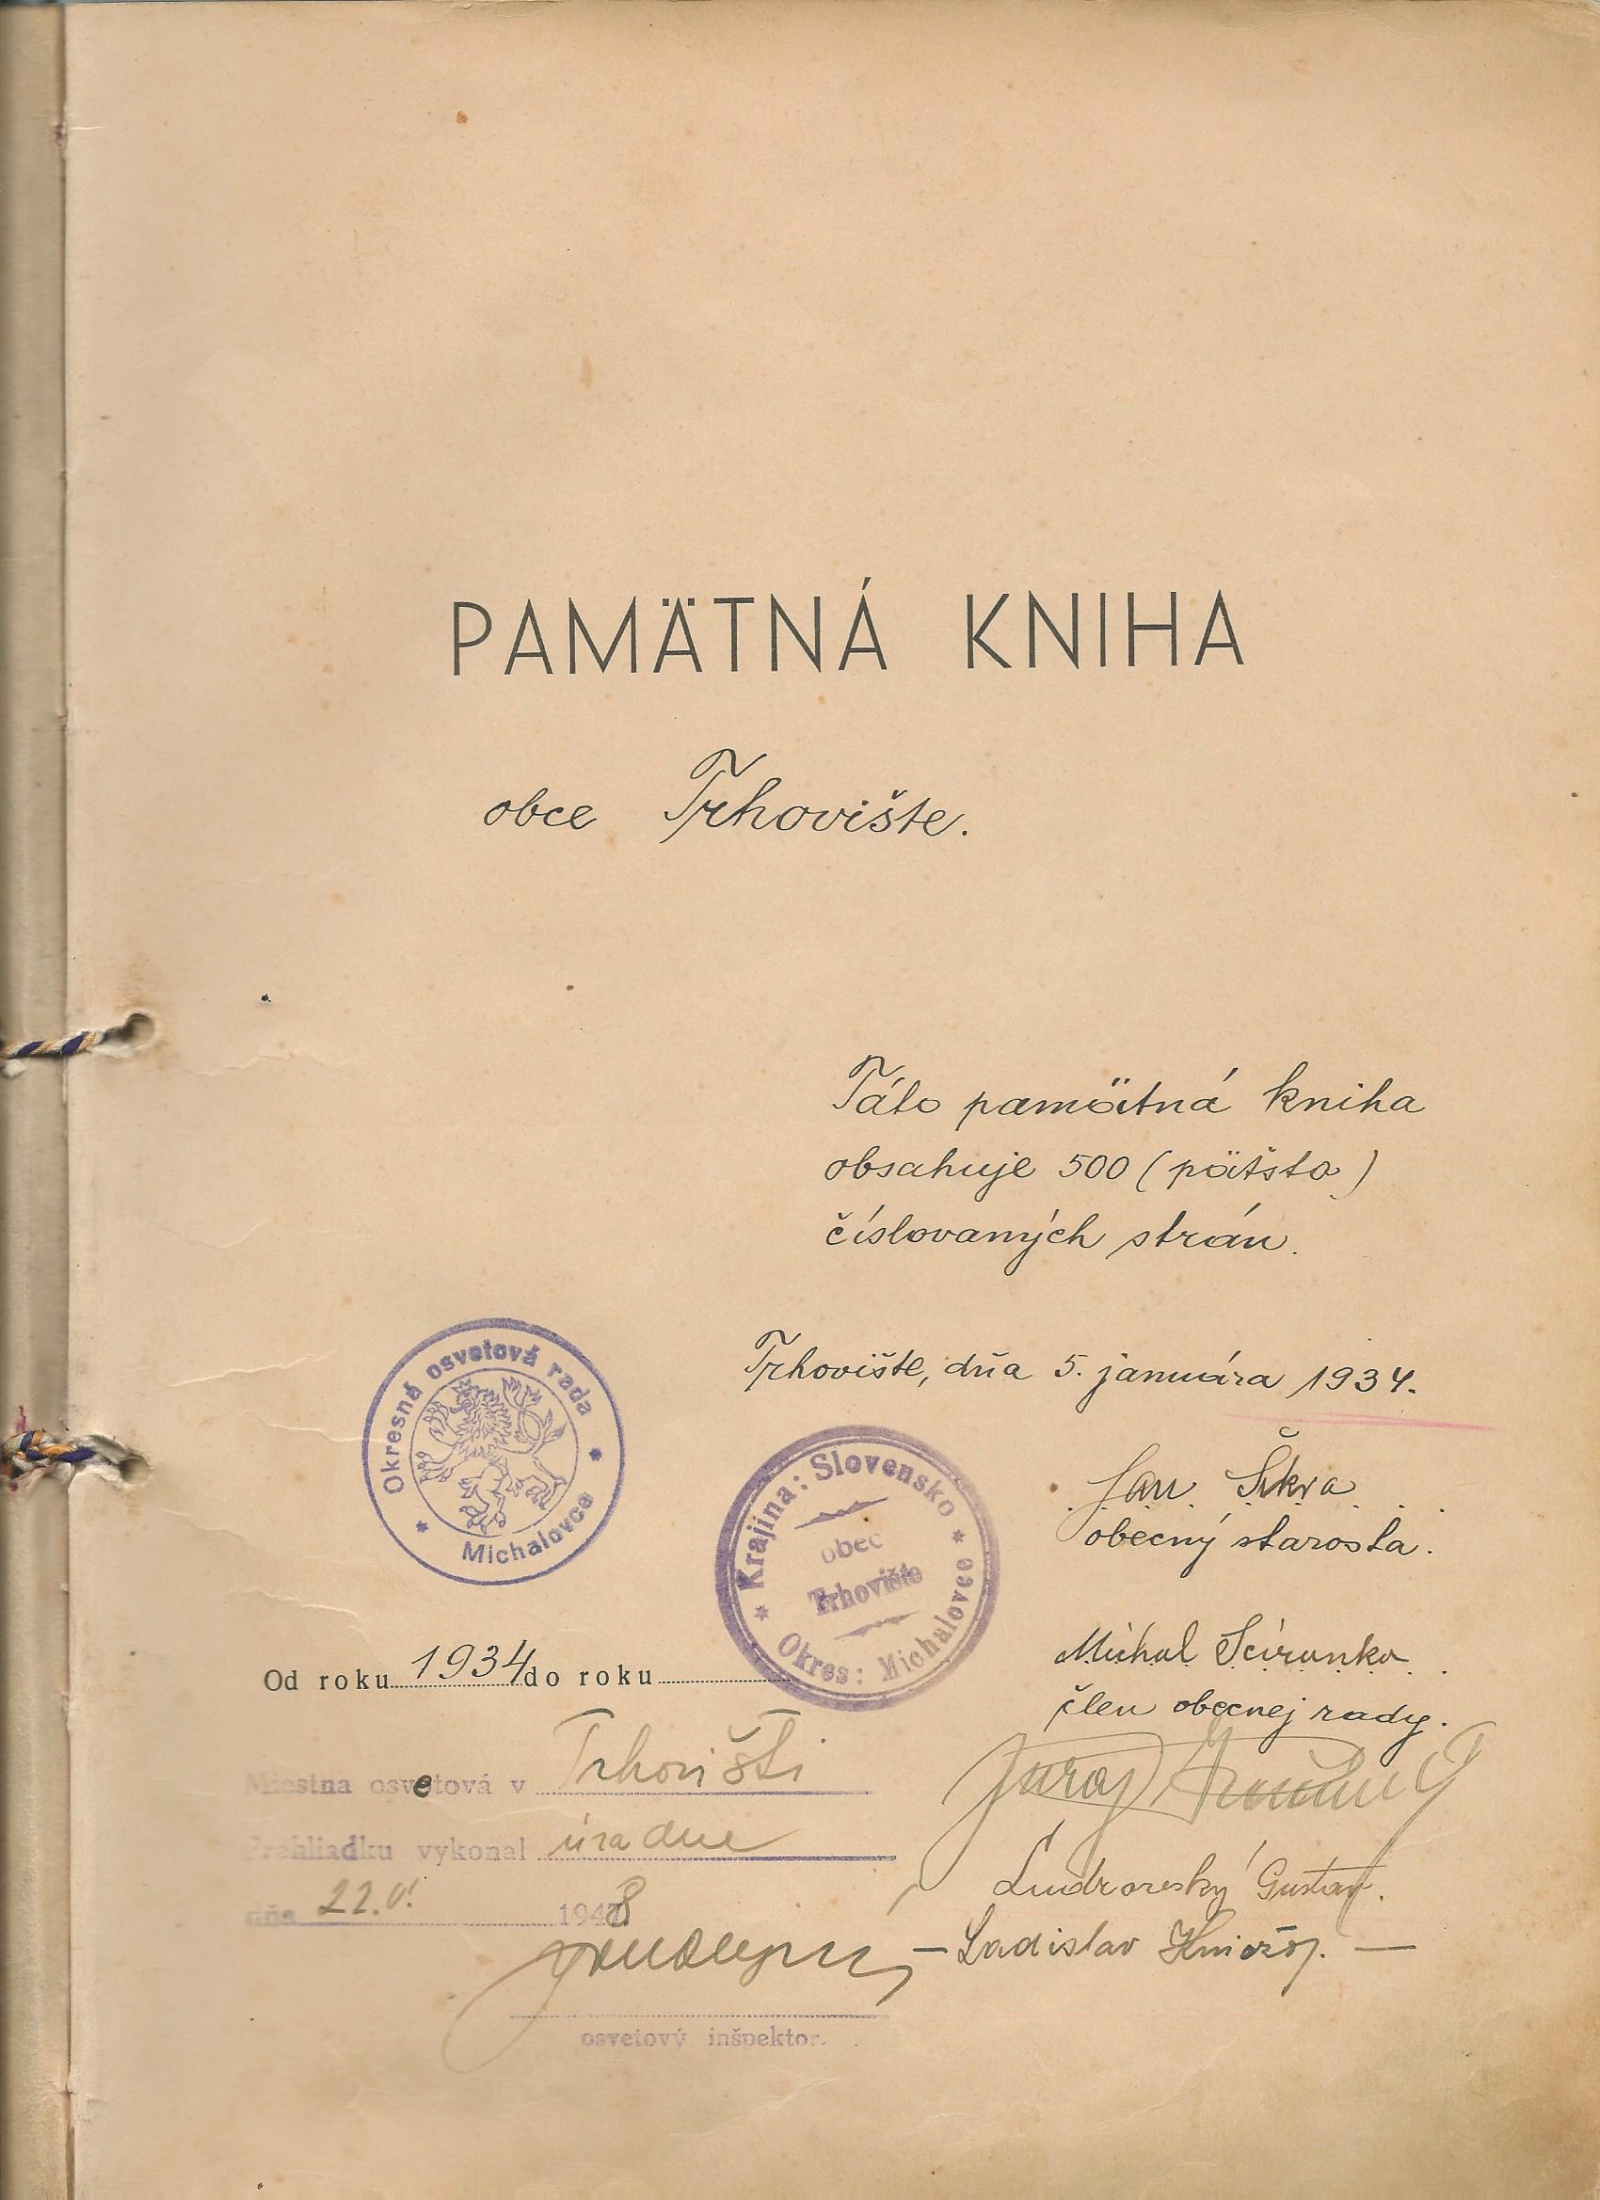 PAMÄTNÁ KNIHA
obce Trhovište.
Táto pamätná kniha
obsahuje 500 (päťsto)
číslovaných strán.
Trhovište, dňa 5. januára 1934.
Okresná osvetová rada
Michalovce
Krajina: Slovensko
obec
Trhovište
Okres: Michalovce
Jan Škra
obecný starosta.
Michal Sciranko
člen obecnej rady.
Juraj
Gustav.
— Ladislav —
Od roku 1934 do roku
Miestna osvetová v Trhovišti
Prehliadku vykonal úradne
dňa 22.VI. 1948
osvetový inšpektor.